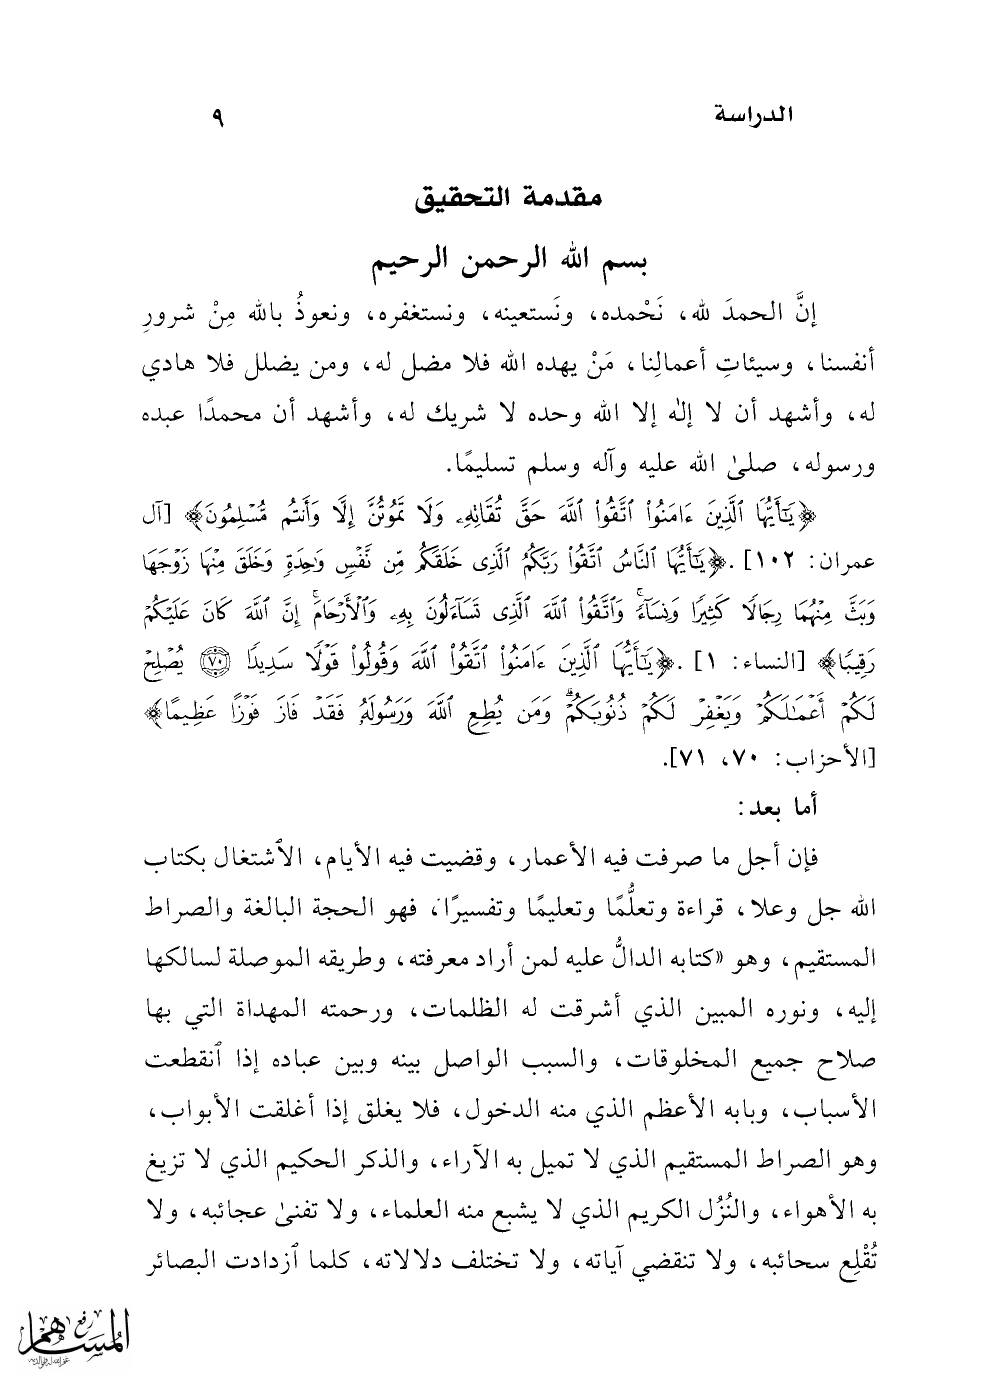 الدراسة ٩
مقدمة التحقيق
بسم الله الرحمن الرحيم
إنَّ الحمدَ لله، نَحْمده، ونَستعينه، ونستغفره، ونعوذُ بالله مِنْ شرورِ
أنفسنا، وسيئاتِ أعمالِنا، مَنْ يهده الله فلا مضل له، ومن يضلل فلا هادي
له، وأشهد أن لا إلٰه إلا الله وحده لا شريك له، وأشهد أن محمدًا عبده
ورسوله، صلىٰ الله عليه وآله وسلم تسليمًا.
﴿يَٰٓأَيُّهَا ٱلَّذِينَ ءَامَنُوا۟ ٱتَّقُوا۟ ٱللَّهَ حَقَّ تُقَاتِهِۦ وَلَا تَمُوتُنَّ إِلَّا وَأَنتُم مُّسْلِمُونَ﴾ [آل
عمران: ١٠٢]. ﴿يَٰٓأَيُّهَا ٱلنَّاسُ ٱتَّقُوا۟ رَبَّكُمُ ٱلَّذِى خَلَقَكُم مِّن نَّفْسٍ وَٰحِدَةٍ وَخَلَقَ مِنْهَا زَوْجَهَا
وَبَثَّ مِنْهُمَا رِجَالًا كَثِيرًا وَنِسَآءً ۚ وَٱتَّقُوا۟ ٱللَّهَ ٱلَّذِى تَسَآءَلُونَ بِهِۦ وَٱلْأَرْحَامَ ۚ إِنَّ ٱللَّهَ كَانَ عَلَيْكُمْ
رَقِيبًا﴾ [النساء: ١]. ﴿يَٰٓأَيُّهَا ٱلَّذِينَ ءَامَنُوا۟ ٱتَّقُوا۟ ٱللَّهَ وَقُولُوا۟ قَوْلًا سَدِيدًا ۝٧٠ يُصْلِحْ
لَكُمْ أَعْمَٰلَكُمْ وَيَغْفِرْ لَكُمْ ذُنُوبَكُمْ ۗ وَمَن يُطِعِ ٱللَّهَ وَرَسُولَهُۥ فَقَدْ فَازَ فَوْزًا عَظِيمًا﴾
[الأحزاب: ٧٠، ٧١].
أما بعد:
فإن أجل ما صرفت فيه الأعمار، وقضيت فيه الأيام، الٱشتغال بكتاب
الله جل وعلا، قراءة وتعلُّمًا وتعليمًا وتفسيرًا، فهو الحجة البالغة والصراط
المستقيم، وهو «كتابه الدالُّ عليه لمن أراد معرفته، وطريقه الموصلة لسالكها
إليه، ونوره المبين الذي أشرقت له الظلمات، ورحمته المهداة التي بها
صلاح جميع المخلوقات، والسبب الواصل بينه وبين عباده إذا ٱنقطعت
الأسباب، وبابه الأعظم الذي منه الدخول، فلا يغلق إذا أغلقت الأبواب،
وهو الصراط المستقيم الذي لا تميل به الآراء، والذكر الحكيم الذي لا تزيغ
به الأهواء، والنُزُل الكريم الذي لا يشبع منه العلماء، ولا تفنىٰ عجائبه، ولا
تُقْلِع سحائبه، ولا تنقضي آياته، ولا تختلف دلالاته، كلما ٱزدادت البصائر
رفع
المساهم